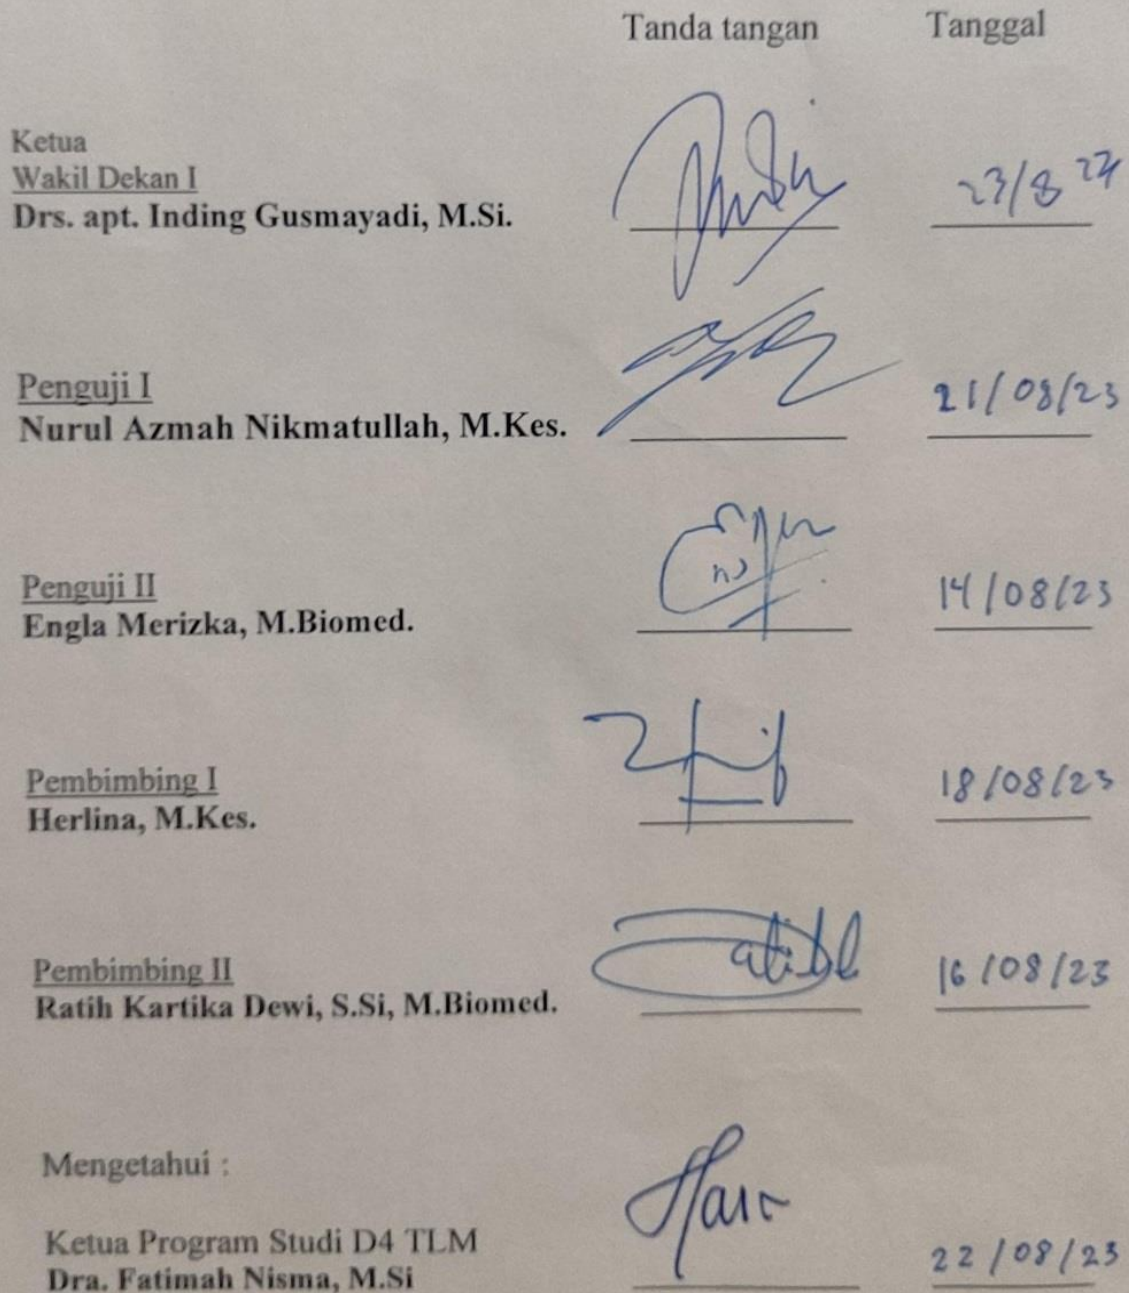 Tanda tangan Tanggal
Ketua
Wakil Dekan I
Drs. apt. Inding Gusmayadi, M.Si. 23/8
Penguji I
Nurul Azmah Nikmatullah, M.Kes. 21/08/23
Penguji II
Engla Merizka, M.Biomed. 14/08/23
Pembimbing I
Herlina, M.Kes. 18/08/23
Pembimbing II
Ratih Kartika Dewi, S.Si, M.Biomed. 16/08/23
Mengetahui :
Ketua Program Studi D4 TLM
Dra. Fatimah Nisma, M.Si 22/08/23